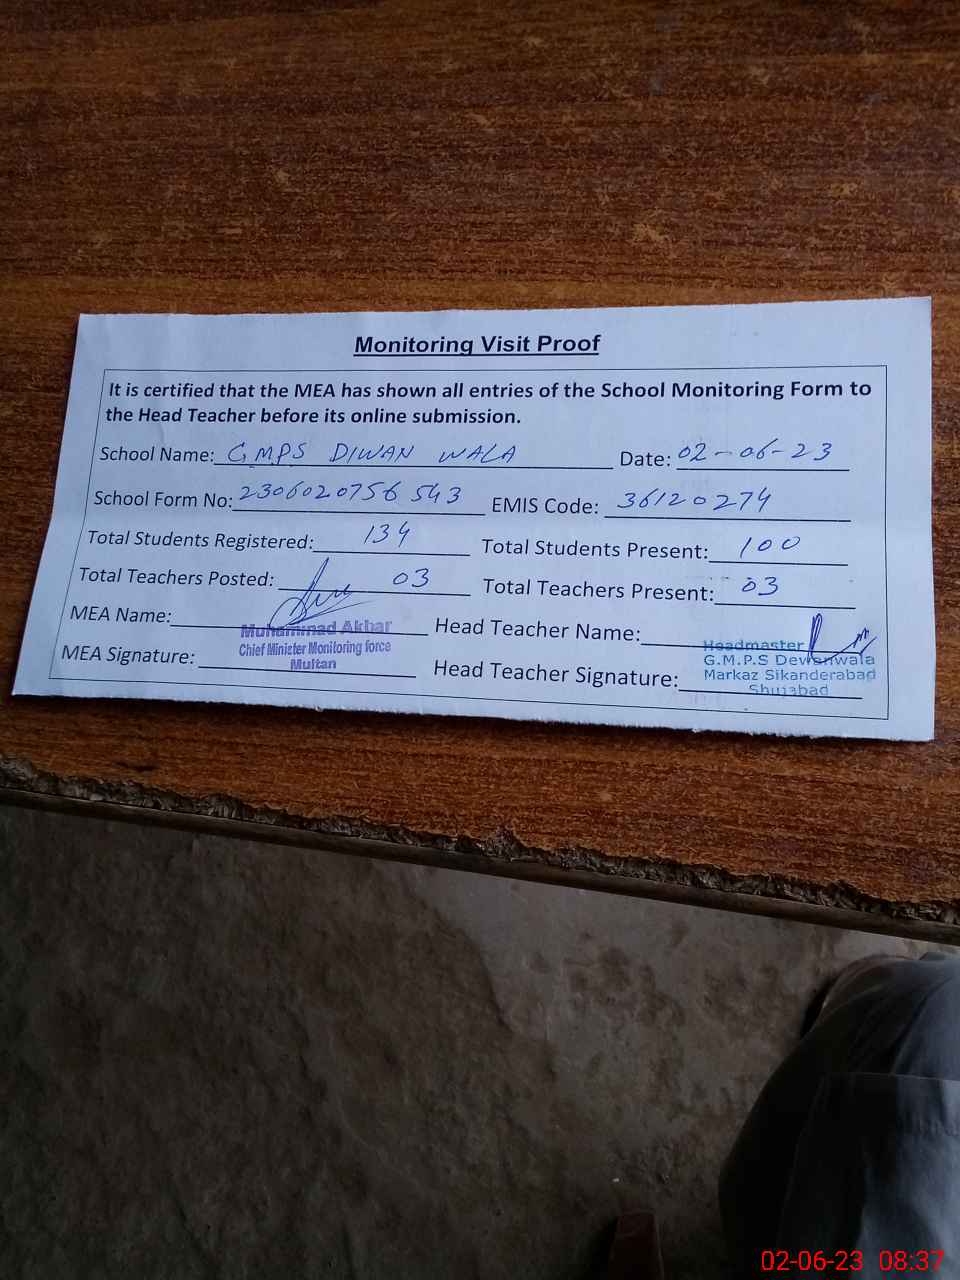 Monitoring Visit Proof
It is certified that the MEA has shown all entries of the School Monitoring Form to
the Head Teacher before its online submission.
School Name: GMPS DIWAN WALA Date: 02-06-23
School Form No: 2306020756543 EMIS Code: 36120274
Total Students Registered: 134 Total Students Present: 100
Total Teachers Posted: 03 Total Teachers Present: 03
MEA Name: Head Teacher Name:
Muhammad Akbar
Chief Minister Monitoring force
Multan
Headmaster
G.M.P.S Dewanwala
Markaz Sikanderabad
Shujabad
MEA Signature: Head Teacher Signature:
02-06-23 08:37